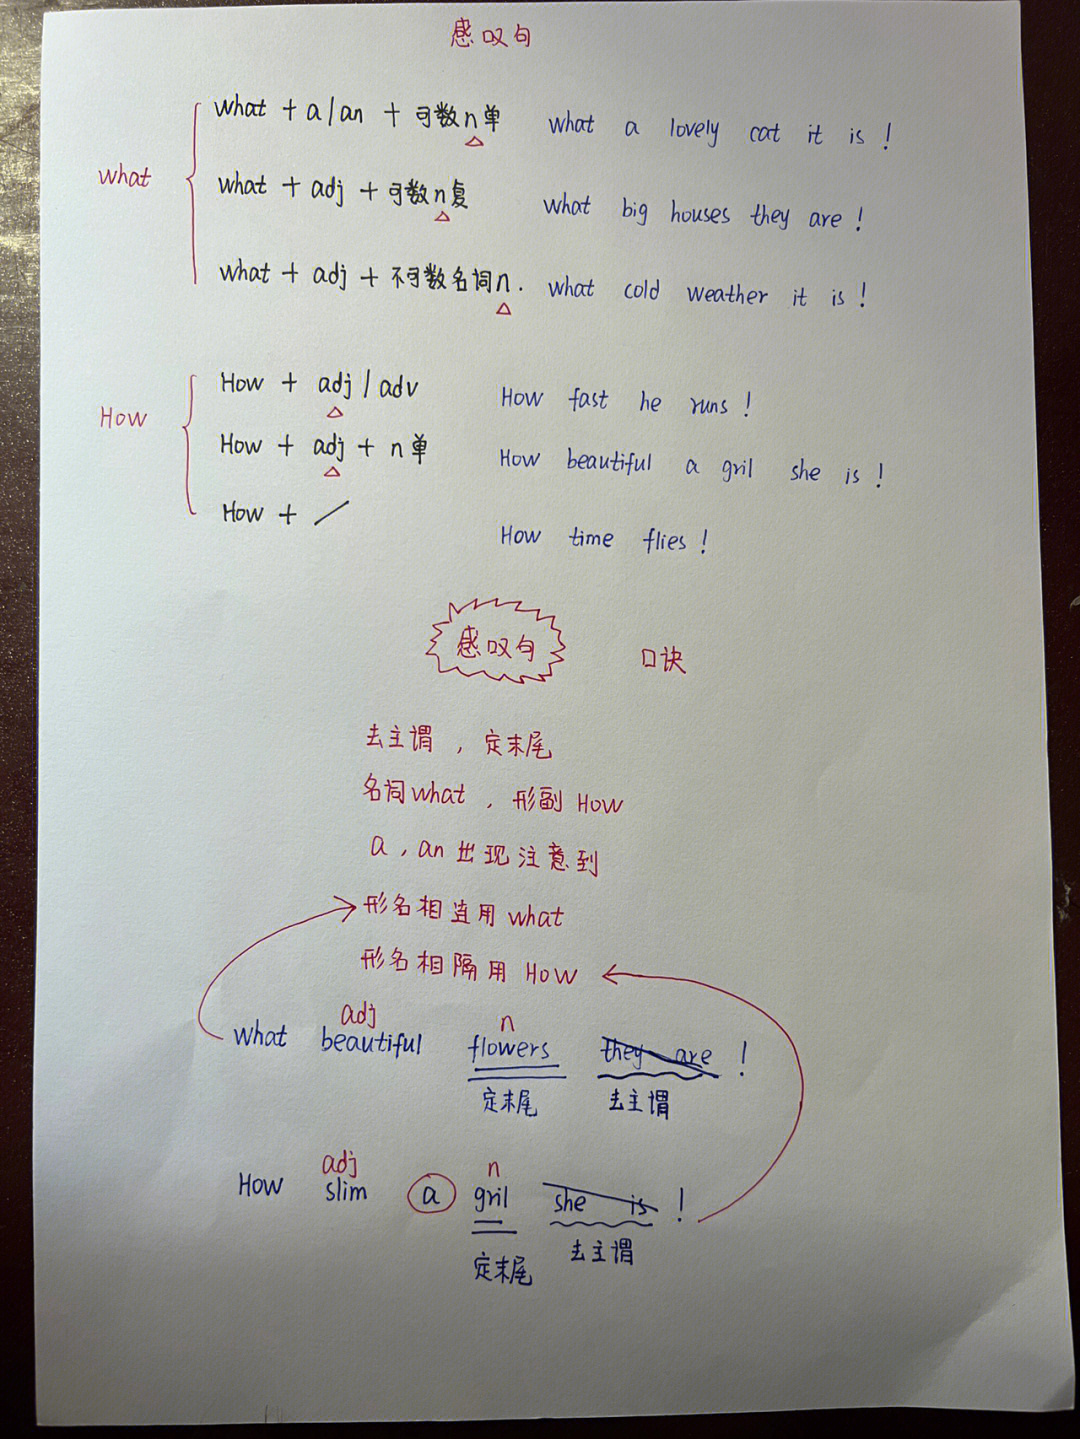 感叹句
what + a/an + 可数n单 what a lovely cat it is !
what
what + adj + 可数n复 what big houses they are !
what + adj + 不可数名词n. what cold weather it is !
How + adj / adv How fast he runs !
How
How + adj + n单 How beautiful a gril she is !
How + ／ How time flies !
感叹句 口诀
去主谓 ，定末尾
名词what ，形副 How
a , an 出现注意到
形名相连用 what
形名相隔用 How
adj n
what beautiful flowers they are !
定末尾 去主谓
adj n
How slim a gril she is !
定末尾 去主谓